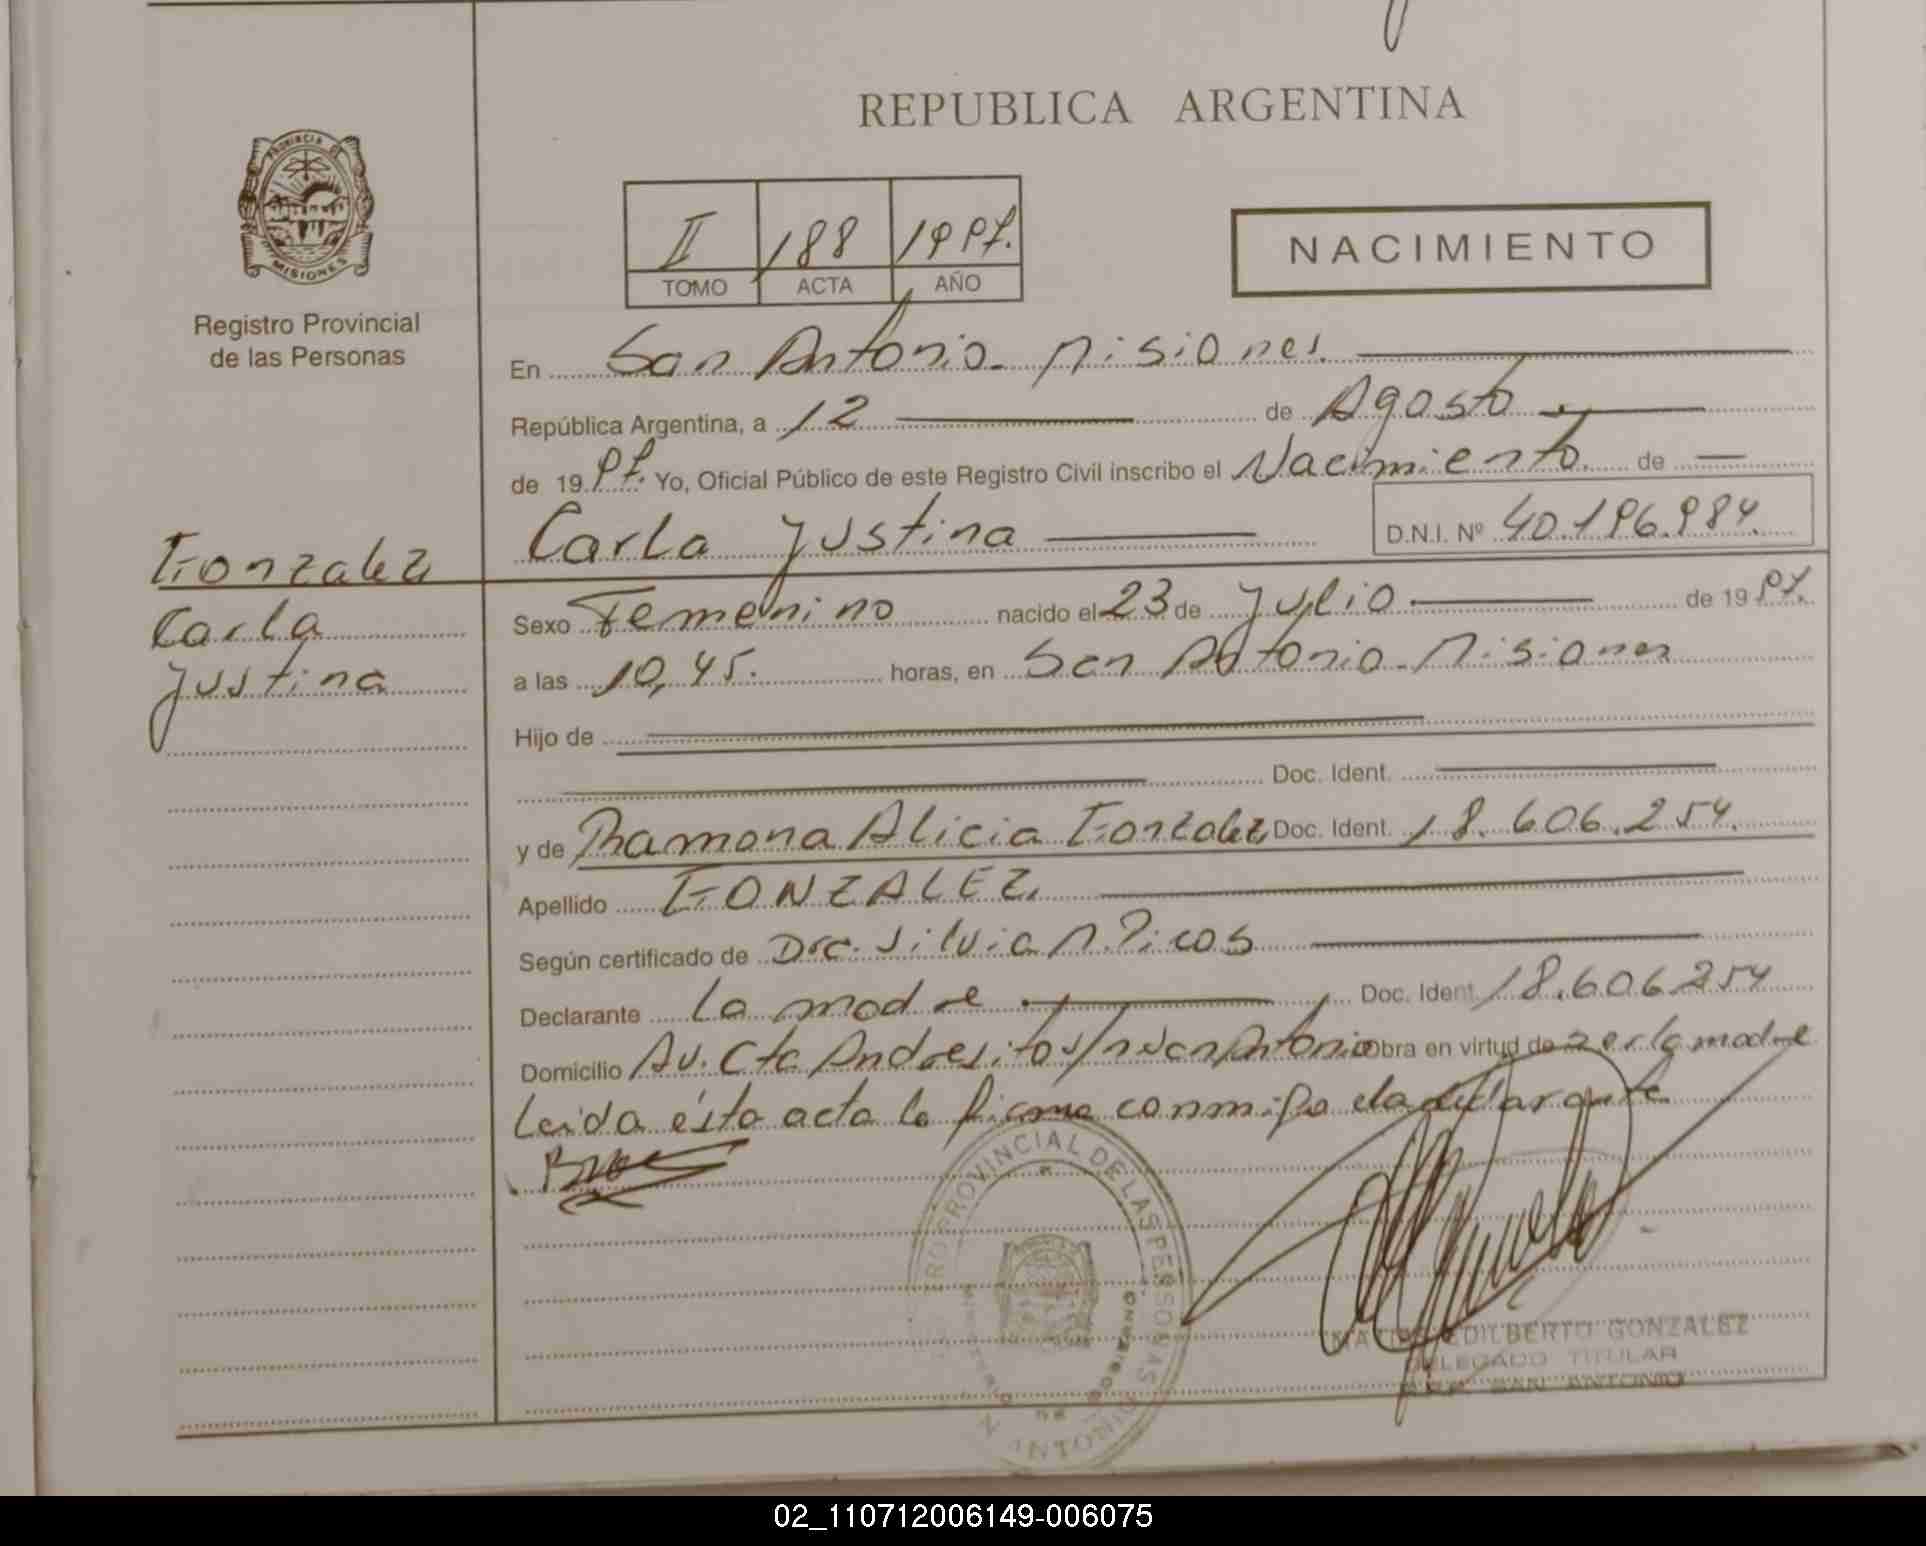 REPUBLICA ARGENTINA
PROVINCIA DE
MISIONES
Registro Provincial
de las Personas
II 188 1997.
TOMO ACTA AÑO
NACIMIENTO
En San Antonio - Misiones.
República Argentina, a 12 de Agosto
de 1997. Yo, Oficial Público de este Registro Civil inscribo el Nacimiento de
Carla Justina
D.N.I. Nº 40.196.984.
Gonzalez
Carla
Justina
Sexo Femenino nacido el 23 de Julio de 1997.
a las 10,45. horas, en San Antonio - Misiones
Hijo de
Doc. Ident.
y de Ramona Alicia Gonzalez Doc. Ident. 18.606.254.
Apellido GONZALEZ.
Según certificado de Dra. Silvia N. Picos
Declarante La madre Doc. Ident. 18.606.254
Domicilio Av. Cte Andresito s/n San Antonio obra en virtud de ser la madre
Leída ésta acta la firma conmigo la declarante
REGISTRO PROVINCIAL DE LAS PERSONAS
SAN ANTONIO
MATIAS EDILBERTO GONZALEZ
DELEGADO TITULAR
R.P.P. SAN ANTONIO
02_110712006149-006075